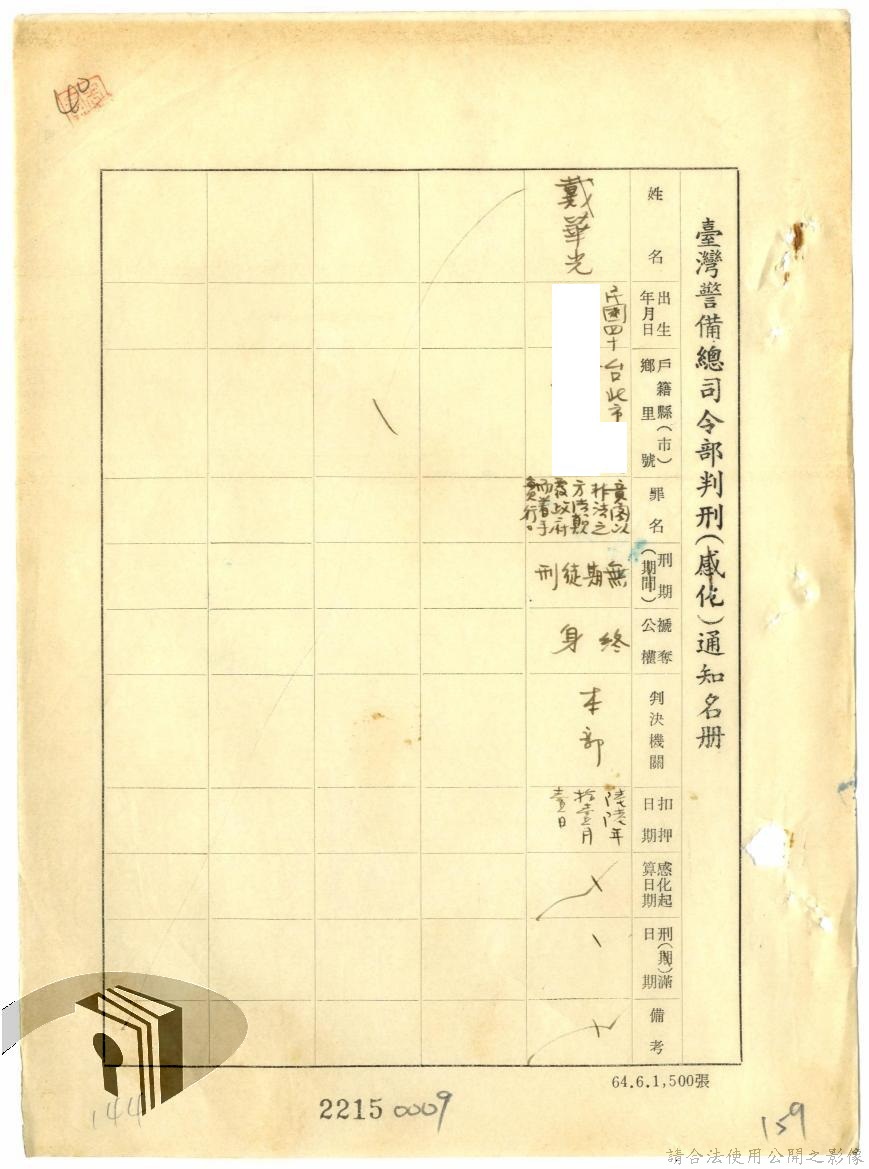 40
臺灣警備總司令部判刑(感化)通知名册
姓名
戴華光
出生年月日
民國四十
戶籍縣(市)鄉里號
台北市
罪名
意圖以
非法之
方法顛
覆政府
而著手
實行。
刑期(期間)
無期徒刑
褫奪公權
終身
判決機關
本部
扣押日期
陸陸年
拾壹月
壹日
感化起算日期
刑(期)滿日期
備考
64.6.1,500張
144
2215 0009
159
請合法使用公開之影像